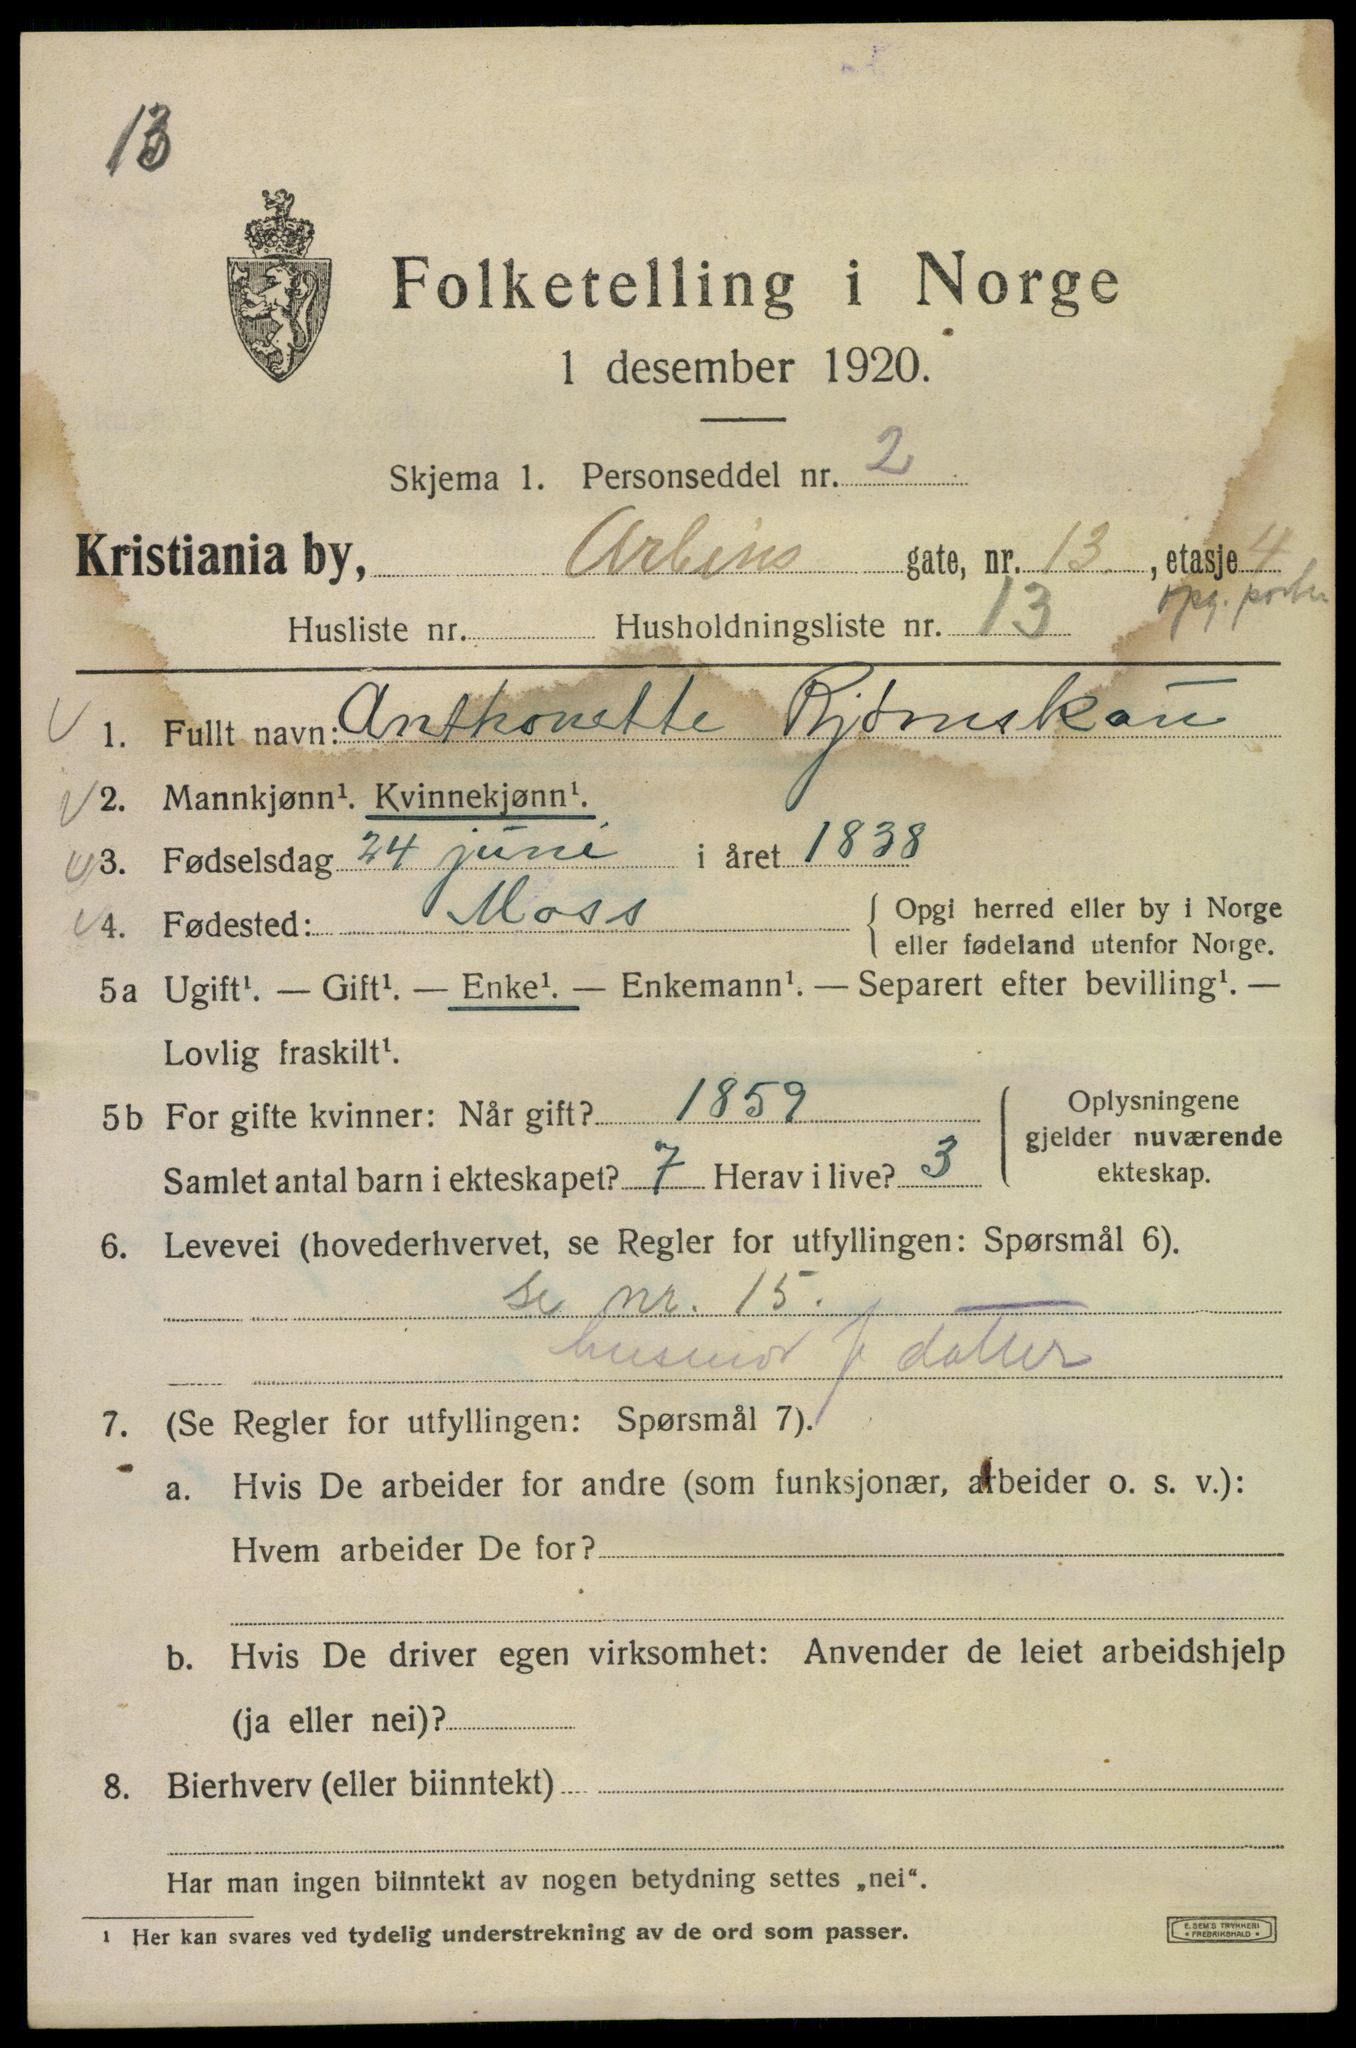 13
Folketelling i Norge
1 desember 1920.
Skjema 1. Personseddel nr. 2
Kristiania by, Arbins gate, nr. 13. , etasje 4
opg.
Husliste nr. Husholdningsliste nr. 13
1. Fullt navn: Anthonette Bjørnskau
2. Mannkjønn¹. Kvinnekjønn¹.
3. Fødselsdag 24 juni i året 1838
4. Fødested: Moss { Opgi herred eller by i Norge
eller fødeland utenfor Norge.
5a Ugift¹. — Gift¹. — Enke¹. — Enkemann¹. — Separert efter bevilling¹. —
Lovlig fraskilt¹.
5b For gifte kvinner: Når gift? 1859
Samlet antal barn i ekteskapet? 7 Herav i live? 3
Oplysningene
gjelder nuværende
ekteskap.
6. Levevei (hovederhvervet, se Regler for utfyllingen: Spørsmål 6).
Se nr. 15.
husmor f datter
7. (Se Regler for utfyllingen: Spørsmål 7).
a. Hvis De arbeider for andre (som funksjonær, arbeider o. s. v.):
Hvem arbeider De for?
b. Hvis De driver egen virksomhet: Anvender de leiet arbeidshjelp
(ja eller nei)?
8. Bierhverv (eller biinntekt)
Har man ingen biinntekt av nogen betydning settes „nei“.
¹ Her kan svares ved tydelig understrekning av de ord som passer.
E. SEM'S TRYKKERI
* FREDRIKSHALD *